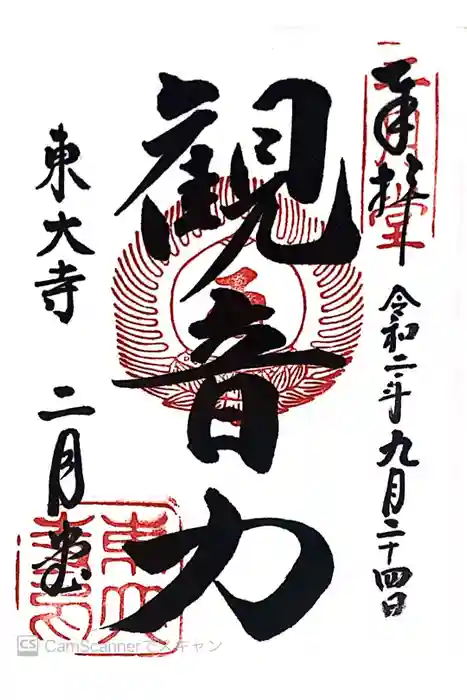 奉拝
令和二年九月二十四日
観音力
東大寺
二月堂
CamScannerでスキャン